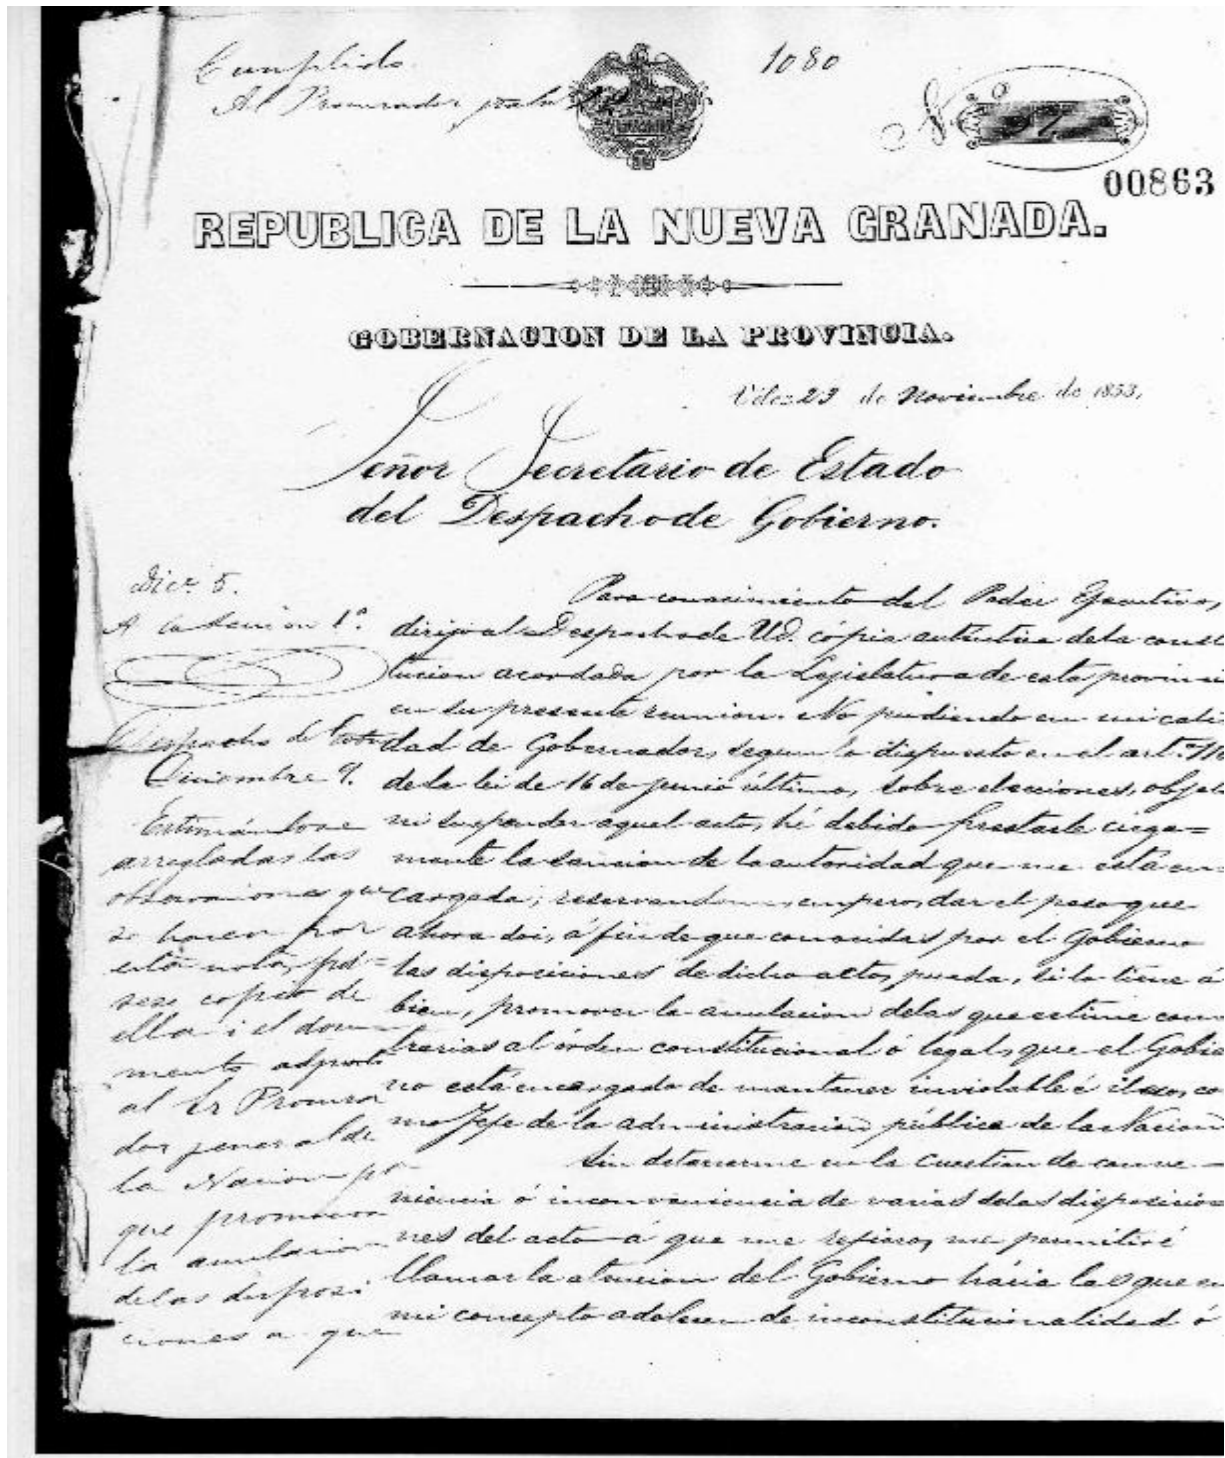 Cumplido
Al Procurador
1080
N.º 97
00863
REPUBLICA DE LA NUEVA GRANADA.
GOBERNACION DE LA PROVINCIA.
Velez 23 de Noviembre de 1853.
Señor Secretario de Estado
del Despacho de Gobierno.
Dice. 5.
A la Seccion 1ª.
Despacho de Gob
Diciembre 9.
Estimándose
arregladas las
observaciones que
se hacen por
esta nota, pá=
sese copia de
ella i el docu-
mento adjunto
al Sr Procura
dor jeneral de
la Nacion pª
que promueva
la anulacion
de las disposi
ciones a que
Para conocimiento del Poder Ejecutivo,
dirijo al Despacho de Ud. cópia auténtica de la consti
tucion acordada por la Lejislatura de esta provinci
en su presente reunion. No pudiendo en mi cali
dad de Gobernador, segun lo dispuesto en el art.º 110
de la lei de 16 de junio último, sobre elecciones, objeta
ni suspender aquel acto, hé debido prestarle ciega=
mente la sancion de la autoridad que me está en-
cargada; reservandome, empero, dar el paso que
ahora doi, á fin de que conocidas por el Gobierno
las disposiciones de dicho acto, pueda, si lo tiene á
bien, promover la anulacion de las que estime con-
trarias al órden constitucional ó legal, que el Gobier
no está encargado de mantener inviolable é ileso, co
mo Jefe de la administracion pública de la Nacion
Sin detenerme en la cuestion de conve-
niencia ó inconveniencia de varias de las disposicio=
nes del acto á que me refiero, me permitiré
llamar la atencion del Gobierno hácia las que en
mi concepto adolecen de inconstitucionalidad ó